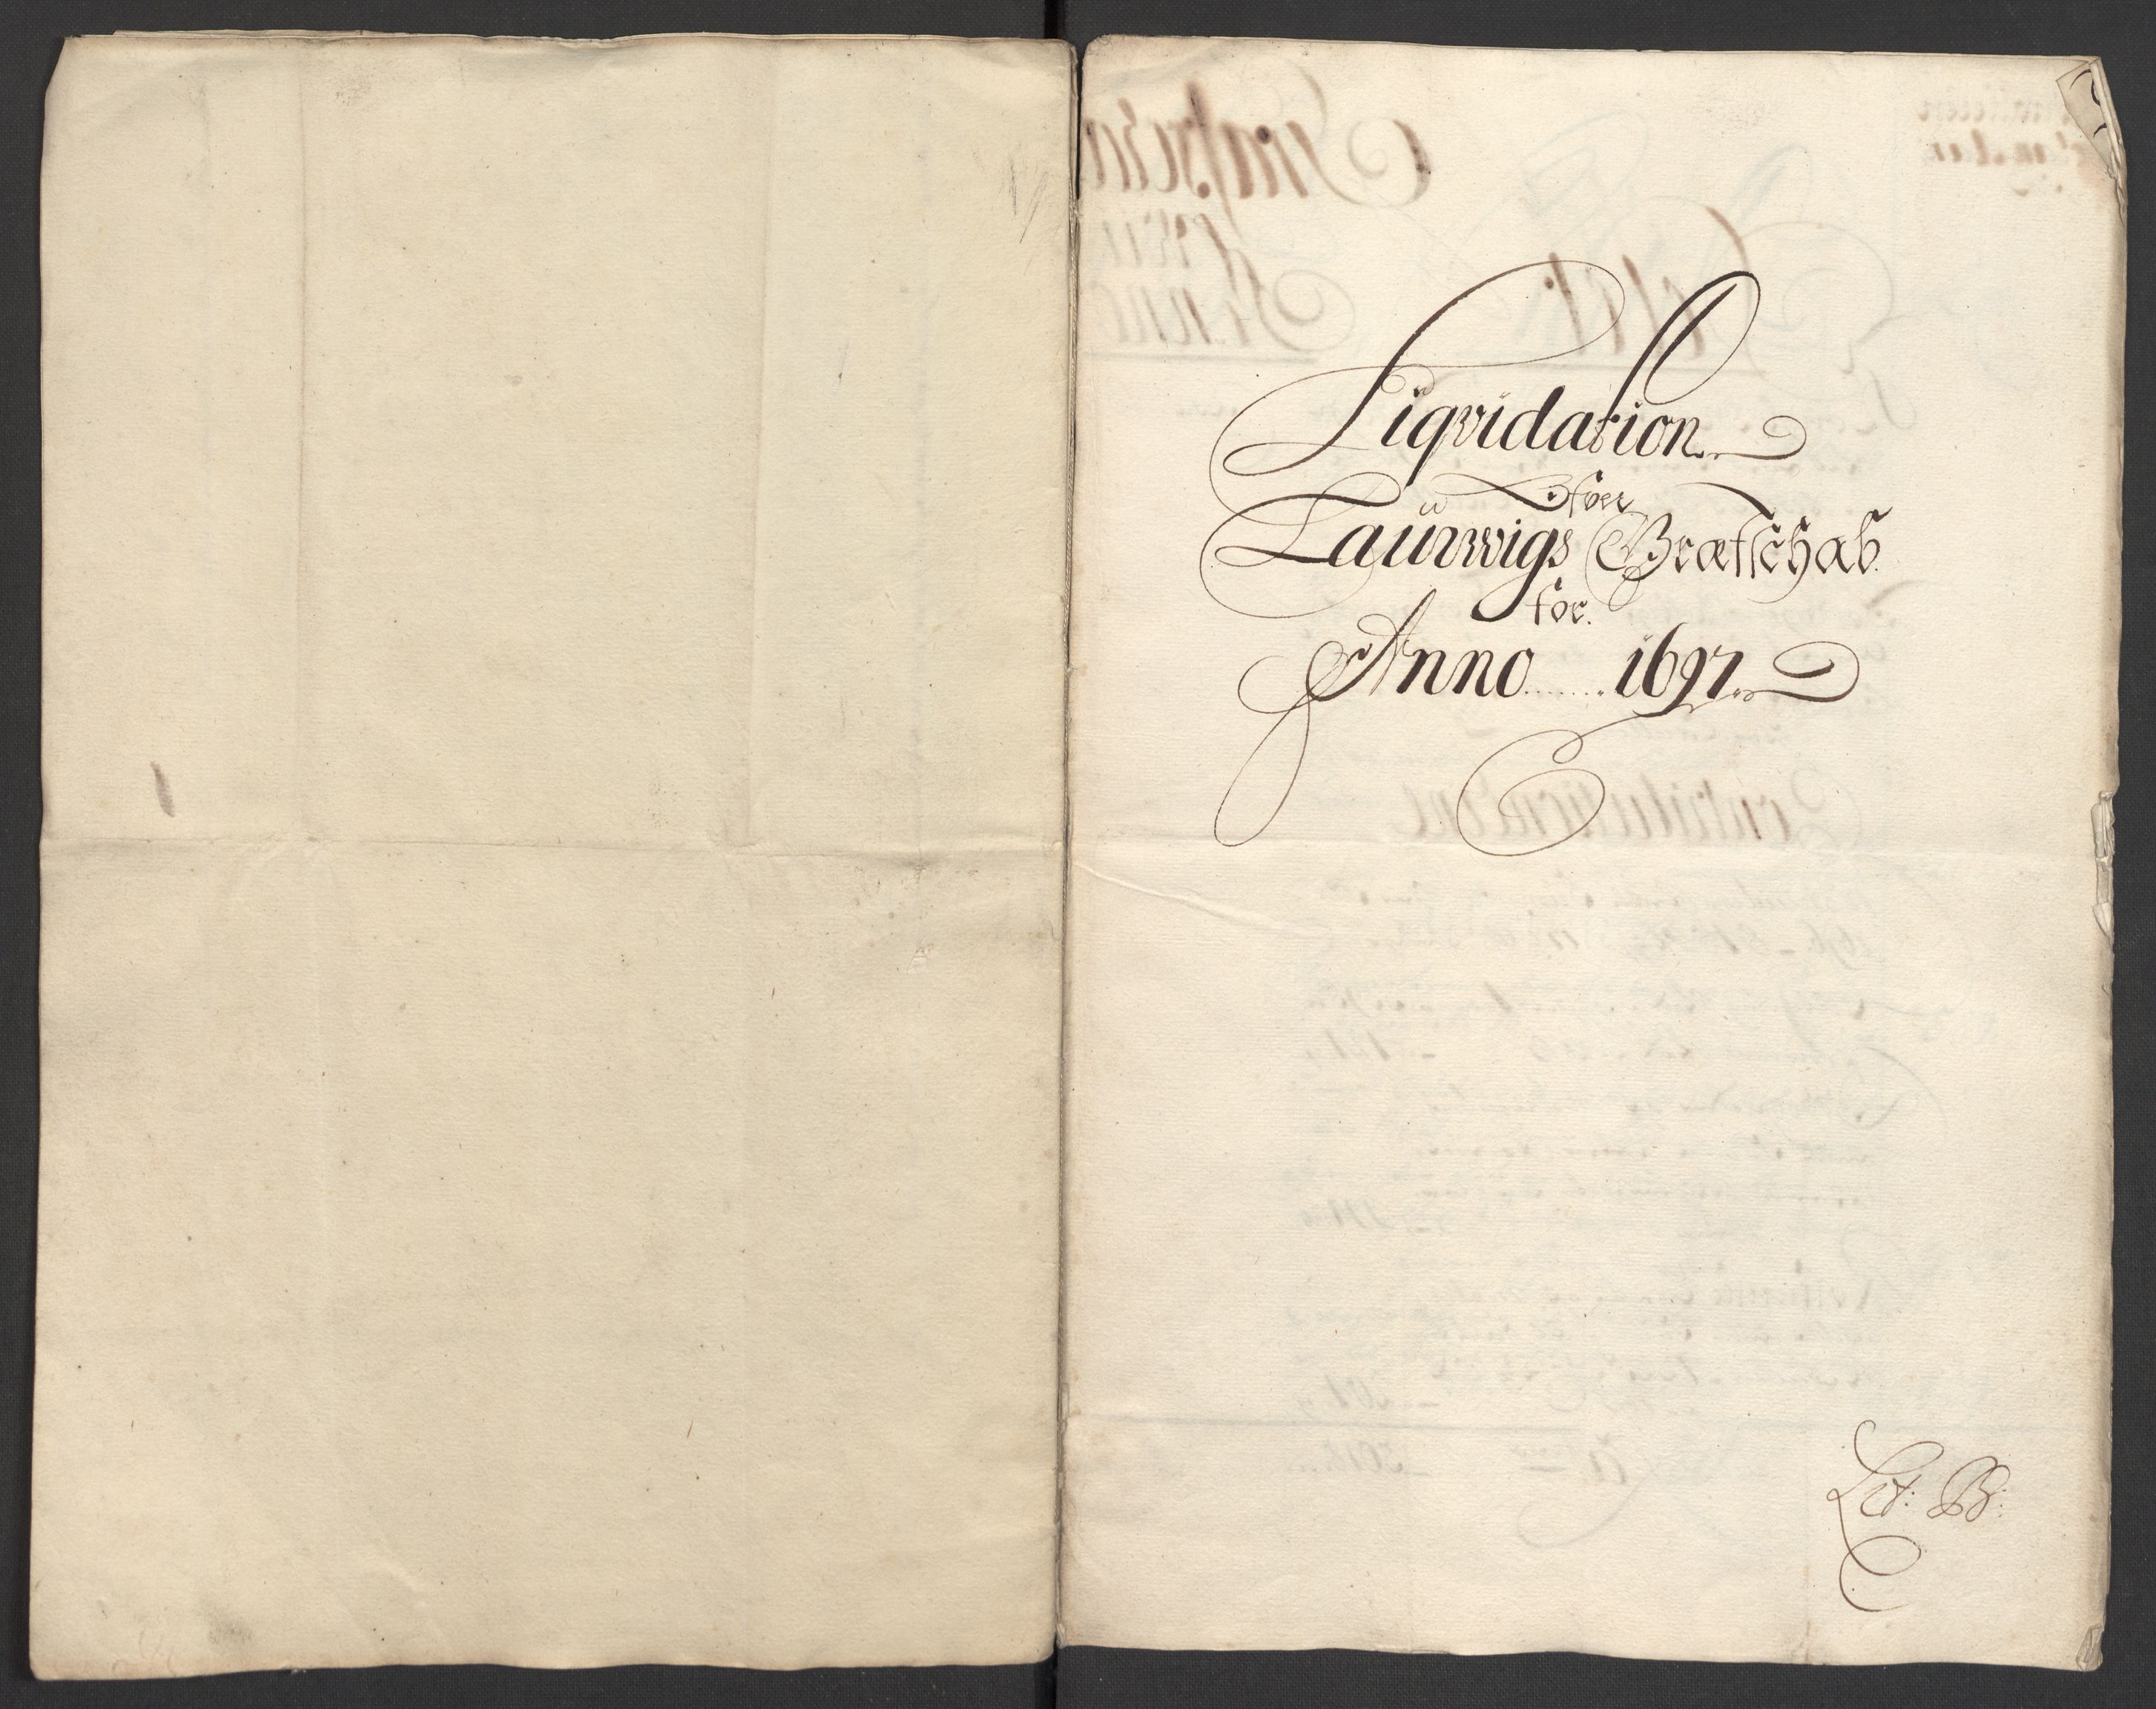 Liqvidation
Ofver
Laürwigs Gräfschab
for
Anno 1697
Lit: B: